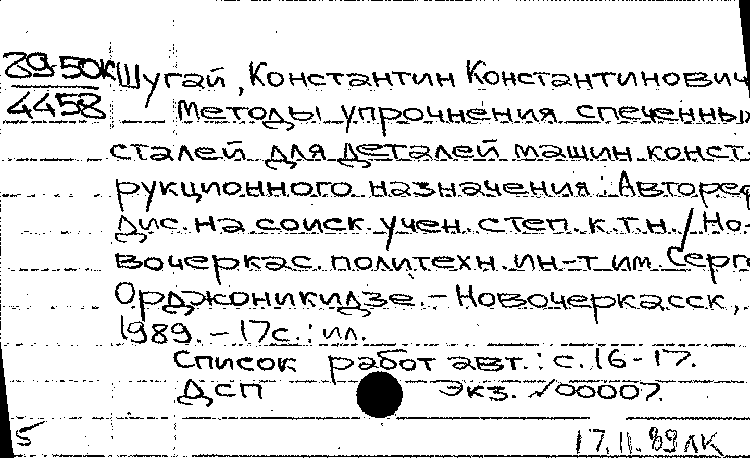 8950К Шугай, Константин Константинович
4458 Методы упрочнения спеченны
сталей для деталей машин конст-
рукционного назначения: Автореф
Дис. на соиск. учен. степ. к.т.н. / Но-
вочеркас. политехн. ин-т им. Серг
Орджоникидзе. - Новочеркасск,
1989. - 17с.: ил.
Список работ авт.: с. 16-17.
ДСП Экз. √00007.
5 17.11.89 ЛК